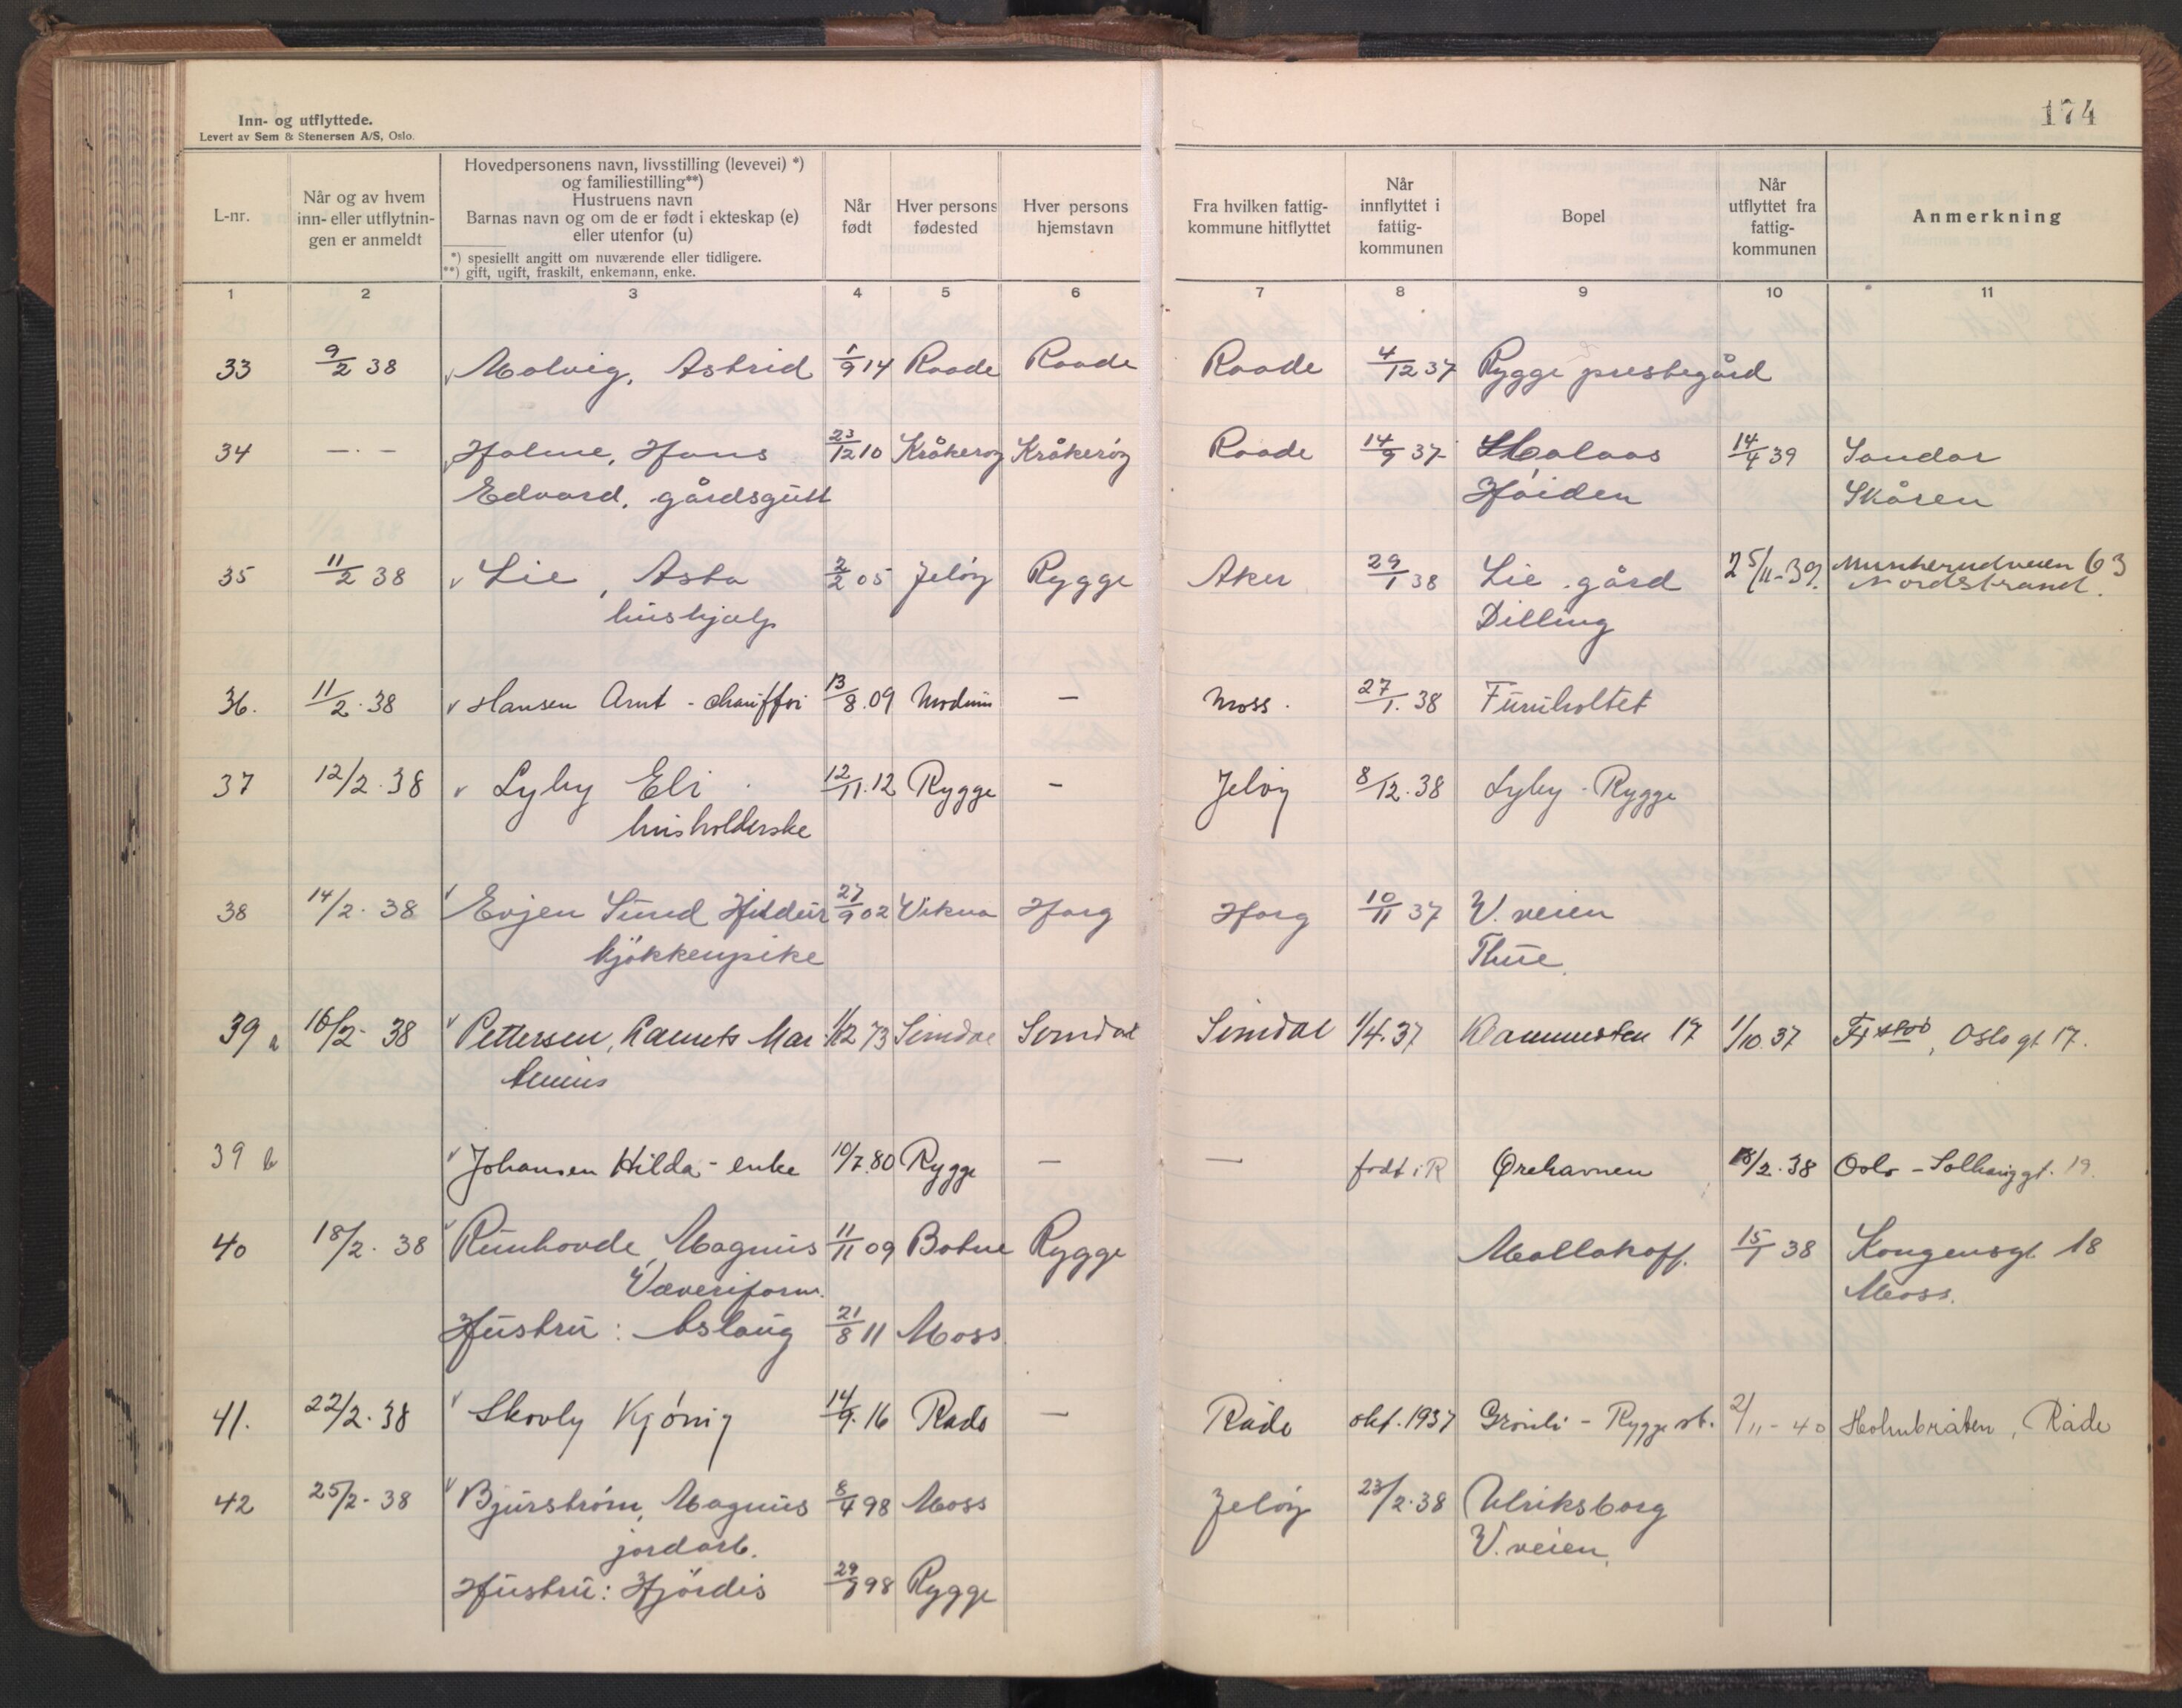 174
Inn- og utflyttede.
Levert av Sem & Stenersen A/S, Oslo.
L-nr.
Når og av hvem
inn- eller utflytnin-
gen er anmeldt
Hovedpersonens navn, livsstilling (levevei) *)
og familiestilling**)
Hustruens navn
Barnas navn og om de er født i ekteskap (e)
eller utenfor (u)
*) spesiellt angitt om nuværende eller tidligere.
**) gift, ugift, fraskilt, enkemann, enke.
Når
født
Hver persons
fødested
Hver persons
hjemstavn
Fra hvilken fattig-
kommune hitflyttet
Når
innflyttet i
fattig-
kommunen
Bopel
Når
utflyttet fra
fattig-
kommunen
Anmerkning
1 2 3 4 5 6 7 8 9 10 11
33 9/2 38 Molvig, Astrid 1/9 14 Raade Raade Raade 4/12 37 Rygge prestegård
34 — · — Holme, Hans 23/12 10 Kråkerøy Kråkerøy Raade 14/9 37 14/4 39 Sandar
Edvard, gårdsgutt Høiden Skåren
35 11/2 38 Lie, Asta 2/2 05 Jeløy Rygge Aker 29/1 38 Lie gård 25/11-39. Munkerudveien 63
hushjælp Dilling Nordstrand.
36. 11/2. 38 Hansen Arnt - chauffør 13/8.09 Modum — Moss. 27/1. 38 Furuholtet
37 12/2. 38 Lyby Eli 12/11.12 Rygge — Jeløy 8/12.38 Lyby - Rygge
husholderske
38 14/2. 38 Evjen Sund Hildur 27/9 02 Vikna Horg Horg 10/11 37 V. veien
kjøkkenpike Thue.
39 a 16/2- 38 Pettersen, 1/12 73 1/4.37 17 1/10.37 Oslo gt 17.
39 b Johansen Hilda - enke 10/7.80 Rygge — — født i R Ørehavnen 18/2.38 Oslo - Solhauggt. 19.
40 18/2. 38 Runhovde, Magnus 11/11 09 Botne Rygge Mallakoff. 15/1 38 Kongensgt 18
Væveriform. Moss.
Hustru: Aslaug 21/8 11 Moss.
41. 22/2. 38 Skovly Kjønig 14/9.16 Råde — Råde okt. 1937 Grønli - Rygge st. 2/11-40 Holmbråten, Råde
42 25/2- 38 Bjurstrøm, Magnus 8/4 98 Moss Jeløy 23/2.38 Ulriksborg
jordarb. V. veien.
Hustru: Hjørdis 98 Rygge